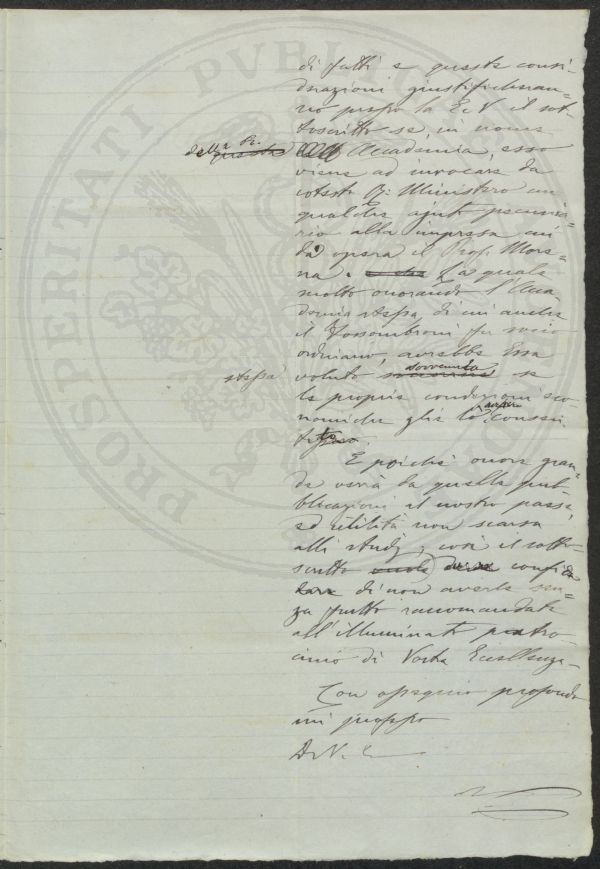 di fatti e queste consi-
derazioni giustificheran-
no presso la E. V. il sot-
toscritto se, in nome
della R. Accademia, esso
viene ad invocare da
cotesto R. Ministero un
qualche ajuto pecunia-
rio alla impresa cui
dà opera il Prof. Mor-
na. La quale
molto onorando l'Acca-
demia stessa, di cui anche
il Fossombroni fu socio
ordinario, avrebbe Essa
stessa voluto sovvenire se
le proprie condizioni eco-
nomiche glie lo avesser consen-
tito.
E poichè onore gran-
de verrà da quella pub-
blicazione al nostro paese,
ed utilità non scarsa
alli studj, così il sotto-
scritto confida
di non averla sen-
za frutto raccomandata
all'illuminato patro-
cinio di Vostra Eccellenza.
Con ossequio profondo
mi professo
Di V. E.
PROSPERITATI PVBLICAE